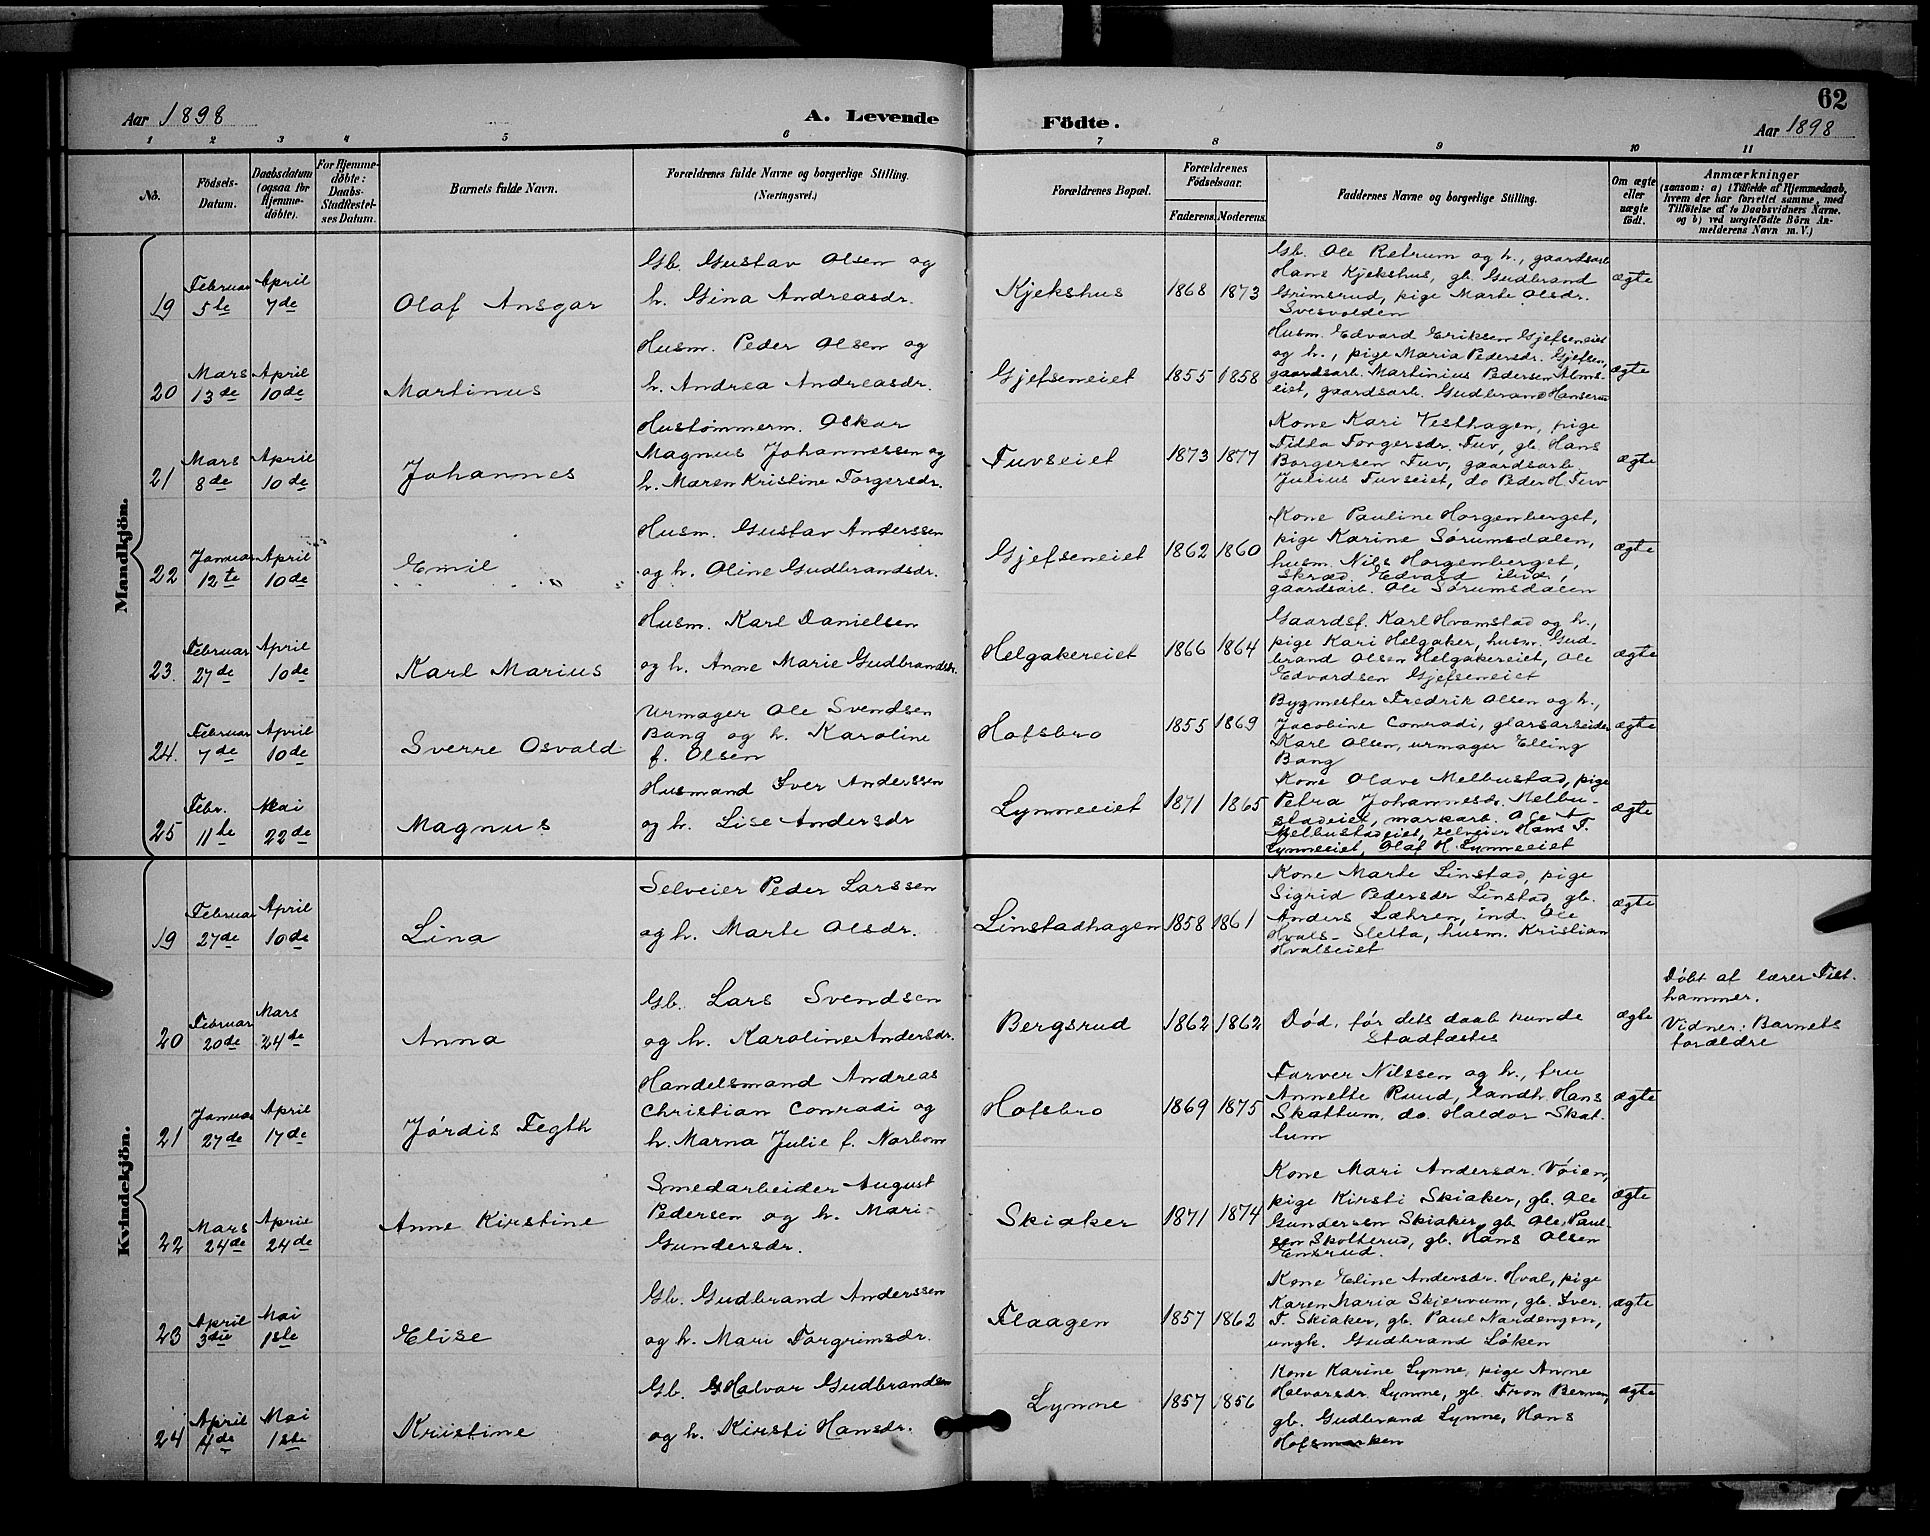 62
Aar 1898
A. Levende
Födte.
Aar 1898
1 2 3 4 5 6 7 8 9 10 11
No.
Födsels-
Datum.
Daabsdatum
(ogsaa for
Hjemme-
döbte).
For Hjemme-
döbte:
Daabs-
Stadfæstel-
ses Datum.
Barnets fulde Navn.
Forældrenes fulde Navne og borgerlige Stilling.
(Næringsvei.)
Forældrenes Bopæl.
Forældrenes
Födselsaar.
Faderens. Moderens.
Faddernes Navne og borgerlige Stilling.
Om ægte
eller
uægte
födt.
Anmærkninger
(saasom: a) i Tilfælde af Hjemmedaab,
hvem der har forrettet samme, med
Tilföielse af to Daabsvidners Navne.
og b) ved uægtefödte Börn An-
melderens Navn m. V.)
Mandkjön.
19
Februar
5te
April
7de
Olaf Ansgar
Gb. Gustav Olsen og
h. Gina Andreasdr.
Kjekshus
1868 1873
Gb. Ole Retrum og h., gaardsarb.
Hans Kjekshus, gb. Gudbrand
Grimsrud, pige Marte Olsdr.
Svesvolden
ægte
20
Mars
13de
April
10de
Martinus
Husm. Peder Olsen og
h. Andrea Andreasdr.
Gjefseneiet
1855 1858
Husm. Edvard Eriksen Gjefseneiet
og h., pige Maria Pedersdr. Gjefsen,
gaardsarb. Martinius Pedersen Alms-
eiet, gaardsarb. Gudbrand Hanserud
ægte
21
Mars
8de
April
10de
Johannes
Hustømmerm. Oskar
Magnus Johannessen og
h. Maren Kristine Torgersdr.
Tuvseiet
1873 1877
Kone Kari Vesthagen, pige
Tilla Torgersdr. Tuv, gb. Hans
Borgersen Tuv, gaardsarb.
Julius Tuvseiet, do Peder H. Tuv
ægte
22
Januar
12te
April
10de
Emil
Husm. Gustav Anderssen
og h. Oline Gudbrandsdr.
Gjefseneiet
1862 1860
Kone Pauline Horgenberget,
pige Karine Sørumsdalen,
husm. Nils Horgenberget,
Skræd. Edvard ibid.,
gaardsarb. Ole Sørumsdalen
ægte
23.
Februar
27de
April
10de
Karl Marius
Husm. Karl Danielsen
og h. Anne Marie Gudbrandsdr.
Helgakereiet
1866 1864
Gaardsf. Karl Hvamstad og h.,
pige Kari Helgaker, husm. Gud-
brand Olsen Helgakereiet, Ole
Edvardsen Gjefseneiet
ægte
24.
Februar
7de
April
10de
Sverre Osvald
Urmager Ole Svendsen
Bang og h. Karoline
f. Olsen
Hofsbro
1855 1869
Bygmester Fredrik Olsen og h.,
Jacobine Conradi, glarsarbeider
Karl Olsen, urmager Elling
Bang
ægte
25
Febr.
11te
Mai
22de
Magnus
Husmand Iver Anderssen
og h. Lise Andersdr
Lynneeiet
1871 1865
Kone Olave Melbustad, pige
Petra Johannesdr. Melbu-
stadeiet, markarb. Ole A
Melbustadeiet, selveier Hans T.
Lynneeiet, Olaf H. Lynneeiet
ægte
Kvindekjön.
19
Februar
27de
April
10de
Lina
Selveier Peder Larssen
og h. Marte Olsdr.
Linstadhagen
1858 1861
Kone Marte Linstad, pige
Sigrid Pedersdr Linstad, gb.
Anders Læhren, ind. Ole
Hvals-Sletta, husm. Kristian
Hvalseiet
ægte
20
Februar
20de
Mars
24de
Anna
Gb. Lars Svendsen
og h. Karoline Andersdr.
Bergsrud
1862 1862
Død, før dets daab kunde
stadfæstes
ægte
Døbt af lærer Fist-
hammer.
Vidner: Barnets
forældre
21
Januar
27de
April
17de
Jørdis Tegth
Handelsmand Andreas
Christian Conradi og
h. Marna Julie f. Norbom
Hofsbro
1869 1875
Farver Nilssen og h., fru
Annette Ruud, landh. Hans
Skattum, do. Haldor Skat-
tum
ægte
22
Mars
24de
April
24de
Anne Kirstine
Smedarbeider August
Pedersen og h. Mari
Gundersdr.
Skiaker
1871 1874
Kone Mari Andersdr. Vøien,
pige Kirsti Skiaker, gb. Ole
Gundersen Skiaker, gb. Ole Paul-
sen Skolterud, gb. Hans Olsen
Ensrud.
ægte
23
April
3die
Mai
1ste
Elise
Gb. Gudbrand Anderssen
og h. Mari Torgrimsdr.
Flaagen
1857 1862
Kone Eline Andersdr. Hval, pige
Karen Maria Skjervum, gb. Iver
T. Skiaker, gb. Paul Nardengen,
ungk. Gudbrand Løken
ægte
24
April
4de
Mai
1ste
Kristine
Gb. Halvor Gudbrandsen
og h. Kirsti Hansdr.
Lynne
1857 1856
Kone Karine Lynne, pige Anne
Halvorsdr. Lynne, gb. Tron Berven,
gb. Gudbrand Lynne, Hans
Hofsmarken
ægte